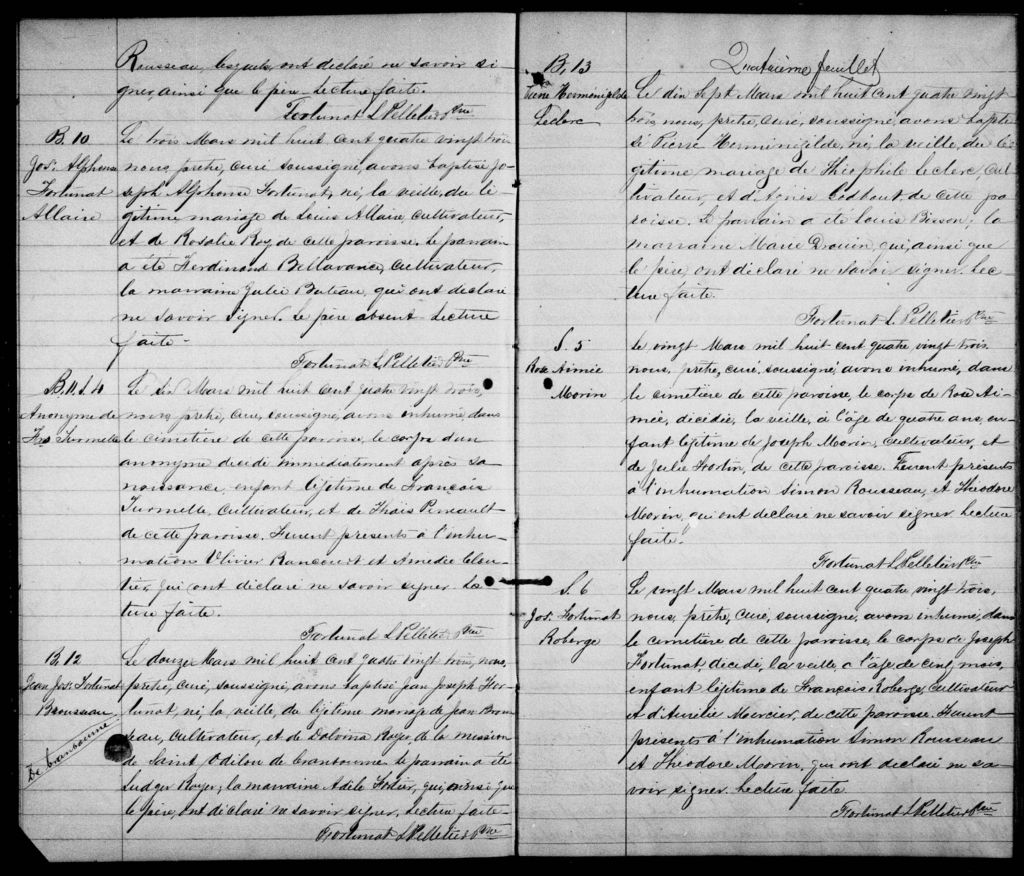 Rousseau, lesquels, ont déclaré ne savoir si-
gner, ainsi que le père. Lecture faite.
Fortunat L Pelletier Ptre
B. 10
Jos. Alphonse
Fortunat
Allaire
Le trois Mars mil huit cent quatre vingt trois
nous, prêtre, curé soussigné, avons baptisé Jo-
seph Alphonse Fortunat, né, la veille, du lé-
gitime mariage de Louis Allaire, cultivateur,
et de Rosalie Roy, de cette paroisse. Le parrain
a été Ferdinand Bellavance, cultivateur,
la marraine Julie Buteau, qui ont déclaré
ne savoir signer. Le père absent. Lecture
faite -
Fortunat L Pelletier Ptre
B. 11. S. 4
Anonyme de
Frs Turmelle
Le six Mars mil huit cent quatre vingt trois,
nous, prêtre, curé, soussigné, avons inhumé, dans
le cimetière de cette paroisse, le corps d'un
anonyme décédé immédiatement après sa
naissance, enfant légitime de François
Turmelle, cultivateur, et de Thaïs
de cette paroisse. Furent présents à l'inhu-
mation Olivier Rancourt et Amédée Clou-
tier, qui ont déclaré ne savoir signer. Lec-
ture faite.
Fortunat L Pelletier Ptre
B. 12
Jean Jos. Fortunat
Brousseau
De Cranbourne
Le douze Mars mil huit cent quatre vingt trois, nous,
prêtre, curé, soussigné, avons baptisé Jean Joseph For-
tunat, né, la veille, du légitime mariage de Jean Brous-
seau, cultivateur, et de Dalvina Royer, de la mission
de Saint Odilon de Cranbourne. Le parrain a été
Ludger Royer; la marraine Adèle Fortier, qui, ainsi que
le père, ont déclaré ne savoir signer. Lecture faite -
Fortunat L Pelletier Ptre
Quatrième feuillet
B. 13
Pierre Herménégilde
Leclerc
Le dix Sept Mars mil huit cent quatre vingt
trois, nous, prêtre, curé, soussigné, avons bapti-
sé Pierre Herménégilde, né, la veille, du lé-
gitime mariage de Théophile Leclerc, cul-
tivateur, et d'Agnès Godbout, de cette pa-
roisse. Le parrain a été Louis Bisson; la
marraine Marie Drouin, qui, ainsi que
le père, ont déclaré ne savoir signer. Lec-
ture faite.
Fortunat L Pelletier Ptre
S. 5
Rose Aimée
Morin
Le vingt Mars mil huit cent quatre vingt trois
nous, prêtre, curé, soussigné, avons inhumé, dans
le cimetière de cette paroisse, le corps de Rose Ai-
mée, décédée, la veille, à l'âge de quatre ans, en-
fant légitime de Joseph Morin, cultivateur, et
de Julie Fortin, de cette paroisse. Furent présents
à l'inhumation Simon Rousseau, et Théodore
Morin, qui ont déclaré ne savoir signer. Lecture
faite.
Fortunat L Pelletier Ptre
S. 6
Jos. Fortunat
Roberge
Le vingt Mars mil huit cent quatre vingt trois,
nous, prêtre, curé, soussigné, avons inhumé, dans
le cimetière de cette paroisse, le corps de Joseph
Fortunat, décédé, la veille, à l'âge de cinq mois,
enfant légitime de François Roberge, cultivateur
et d'Aurélie Mercier, de cette paroisse. Furent
présents à l'inhumation Simon Rousseau
et Théodore Morin, qui ont déclaré ne sa-
voir signer. Lecture faite
Fortunat L Pelletier Ptre